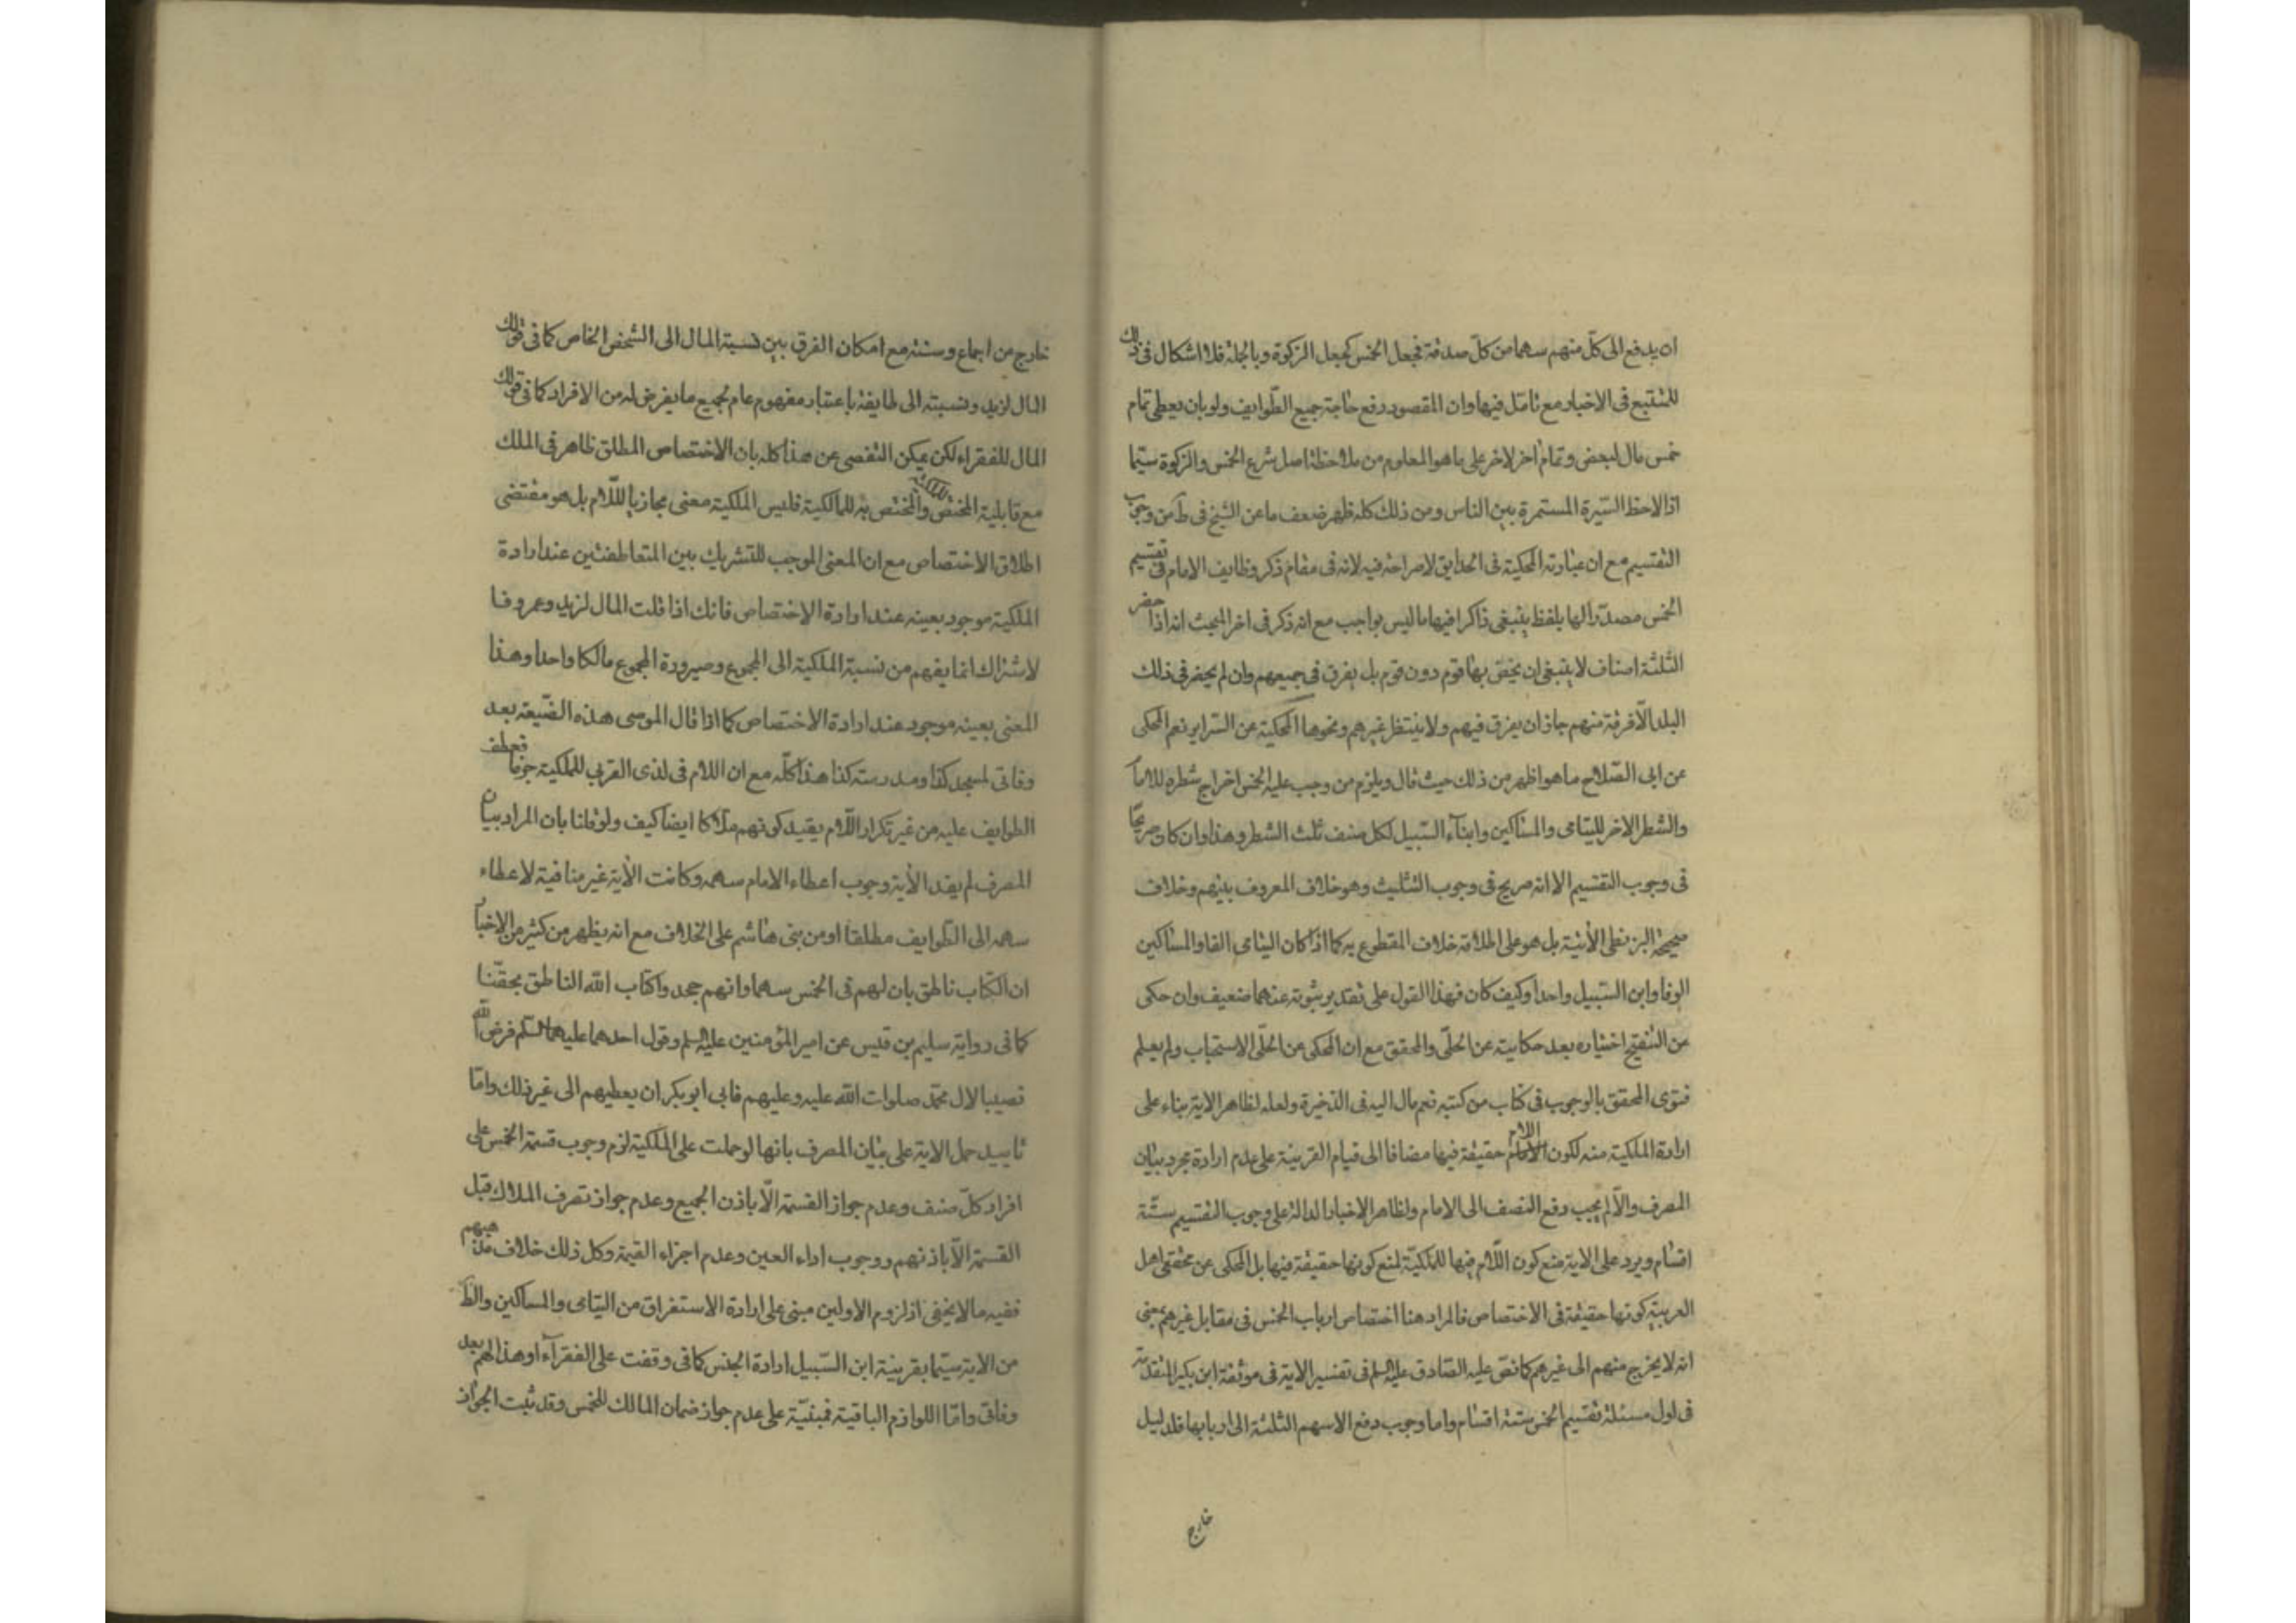 ان يدفع الى كلّ منهم سهما من كلّ صدقة فجعل الخمس كجعل الزكوة وبالجملة فلا اشكال فى ذلك
للمتتبع فى الاخبار مع تامّل فيها وان المقصود رفع حاجة جميع الطّوايف ولو بان يعطى تمام
خمس مال لبعض وتمام اخر لاخر على ما هو المعلوم من ملاحظة اصل شرع الخمس والزكوة سيّما
اذا لاحظ السّيرة المستمرة بين الناس ومن ذلك كله ظهر ضعف ما عن الشيخ فى ط من وجوب
التقسيم مع ان عبارته المحكية فى الحدايق لا صراحة فيه لانه فى مقام ذكر وظايف الامام فى تقسيم
الخمس مصدّرا لها بلفظ ينبغى ذاكرا فيها ما ليس بواجب مع انه ذكر فى اخر المبحث انه اذا حضر
الثلثة اصناف لا ينبغى ان يخصّ بها قوم دون قوم بل يفرق فى جميعهم وان لم يحضر فى ذلك
البلد الّا فرقة منهم جاز ان يفرق فيهم ولا ينتظر غيرهم ونحوها المحكية عن السرائر نعم المحكى
عن ابى الصّلاح ما هو اظهر من ذلك حيث قال ويلزم من وجب عليه الخمس اخراج شطره للامام
والشطر الاخر لليتامى والمساكين وابناء السّبيل لكل صنف ثلث الشطر وهذا وان كان صريحا
فى وجوب التقسيم الا انه صريح فى وجوب التثليث وهو خلاف المعروف بينهم وخلاف
صحيحة البزنطى الأتية بل هو على اطلاقه خلاف المقطوع به كما اذا كان اليتامى الفا والمساكين
الوفا وابن السّبيل واحدا وكيف كان فهذا القول على تقدير ثبوته عنهما ضعيف وان حكى
عن التنقيح اختياره بعد حكايته عن الحلّى والمحقق مع ان المحكى عن الحلّى الاستحباب ولم يعلم
فتوى المحقق بالوجوب فى كتاب من كتبه نعم مال اليه فى الذخيرة ولعله لظاهر الاية بناء على
ارادة الملكية منه لكون اللام حقيقة فيها مضافا الى قيام القرينة على عدم ارادة مجرد بيان
المصرف والّا لم يجب دفع النصف الى الامام ولظاهر الاخبار الدالة على وجوب التقسيم ستّة
اقسام ويرد على الاية منع كون اللّام فيها للملكيّة لمنع كونها حقيقة فيها بل المحكى عن محققى اهل
العربية كونها حقيقة فى الاختصاص فالمراد هنا اختصاص ارباب الخمس فى مقابل غيرهم بمعنى
انه لا يخرج منهم الى غيرهم كما نصّ عليه الصّادق عليه السلم فى تفسير الاية فى موثقة ابن بكير المتقدمة
فى اول مسئلة تقسيم الخمس ستة اقسام واما وجوب دفع الاسهم الثلثة الى اربابها فلدليل
خارج
خارج من اجماع وسنة مع امكان الفرق بين نسبة المال الى الشخص الخاص كما فى قولك
المال لزيد ونسبته الى طايفة باعتبار مفهوم عام لجميع ما يفرض له من الافراد كما فى قولك
المال للفقراء لكن يمكن التفصى عن هذا كله بان الاختصاص المطلق ظاهر فى الملك
مع قابلية المختص للملكية والمختص به للمالكية فليس الملكية معنى مجازيا للّام بل هو مقتضى
اطلاق الاختصاص مع ان المعنى الموجب للتشريك بين المتعاطفين عند ارادة
الملكية موجود بعينه عند ارادة الاختصاص فانك اذا قلت المال لزيد وعمرو فا
لاشتراك انما يفهم من نسبة الملكية الى المجموع وصيرورة المجموع مالكا واحدا وهذا
المعنى بعينه موجود عند ارادة الاختصاص كما اذا قال الموصى هذه الضّيعة بعد
وفاتى لمسجد كذا ومدرسته كذا هذا كلّه مع ان اللام فى لذى القربى للملكية جزما فعطف
الطوايف عليه من غير تكرار اللّام يفيد كونهم ملاكا ايضا كيف ولو قلنا بان المراد بيان
المصرف لم يفد الأية وجوب اعطاء الامام سهمه وكانت الأية غير منافية لاعطاء
سهمه الى الطّوايف مطلقا او من بنى هاشم على الخلاف مع انه يظهر من كثير من الاخبار
ان الكتاب ناطق بان لهم فى الخمس سهما وانهم جحدوا كتاب الله الناطق بحقّنا
كما فى رواية سليم بن قيس عن امير المؤمنين عليه السلم وقول احدهما عليهما السّلم فرض الله
نصيبا لال محمّد صلوات الله عليه وعليهم فابى ابو بكر ان يعطيهم الى غير ذلك وامّا
تاييد حمل الاية على بيان المصرف بانها لو حملت على الملكية لزم وجوب قسمة الخمس على
افراد كلّ صنف وعدم جواز القسمة الّا باذن الجميع وعدم جواز تصرف الملاك قبل
القسمة الّا باذنهم ووجوب اداء العين وعدم اجزاء القيمة وكل ذلك خلاف مذهبهم
ففيه ما لا يخفى اذ لزوم الاولين مبنى على ارادة الاستغراق من اليتامى والمساكين والظ
من الاية سيّما بقرينة ابن السّبيل ارادة الجنس كما فى وقفت على الفقراء او هذا لهم بعد
وفاتى وامّا اللوازم الباقية فمبنيّة على عدم جواز ضمان المالك للخمس وقد ثبت الجواز